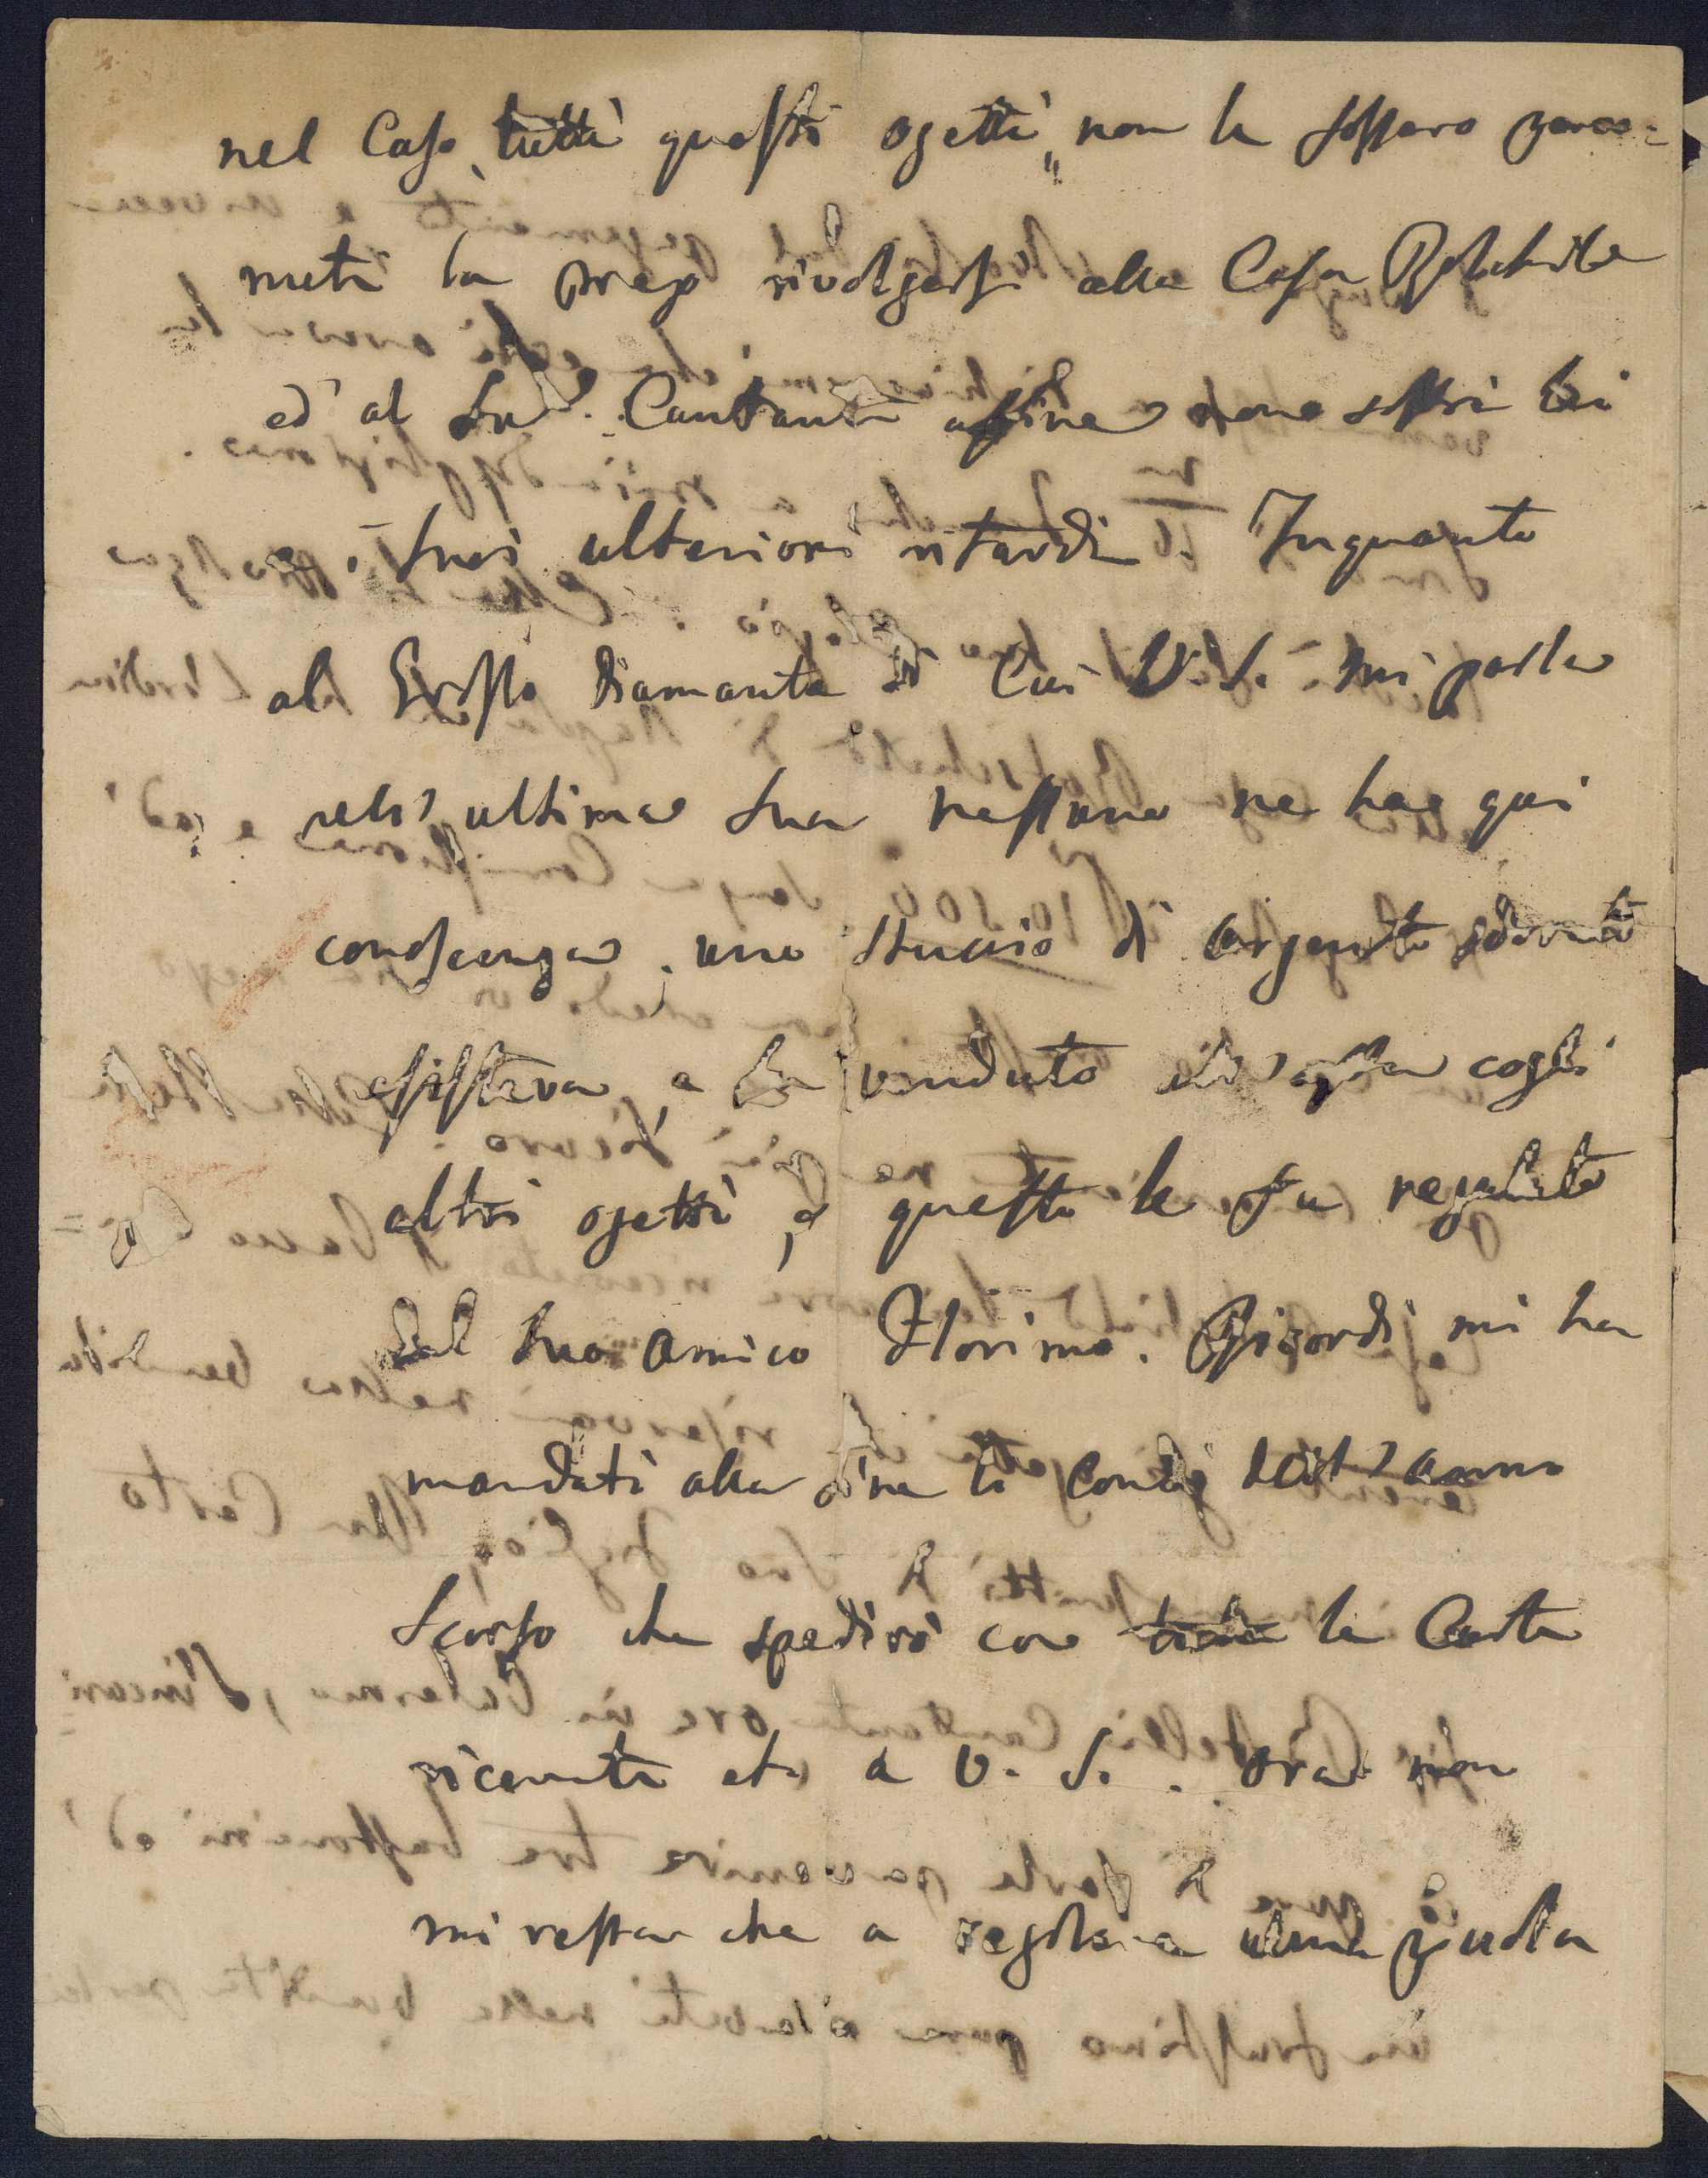 nel Caso tutti questi ogetti non le fossero perve=
nuti la prego rivolgersi alla Casa Rotschild
ed' al Sud. Cantante affine non soffri lei
i suoi ulteriori ritardi Inquanto
al Grosso Diamante di Cui V. S. mi parla
nell' ultima Sua nessuno ne ha qui
conoscenza, uno stucio di argento
esisteva, e fu venduto all' asta cogli
altri ogetti, e questo le fu regalato
dal suo amico Florimo. Ricordi mi ha
mandati alla fine li Conti dell' anno
scorso che spedirò con tutte le Carte
ricevute etc a V. S. . Ora non
mi resta che a regolare una picola